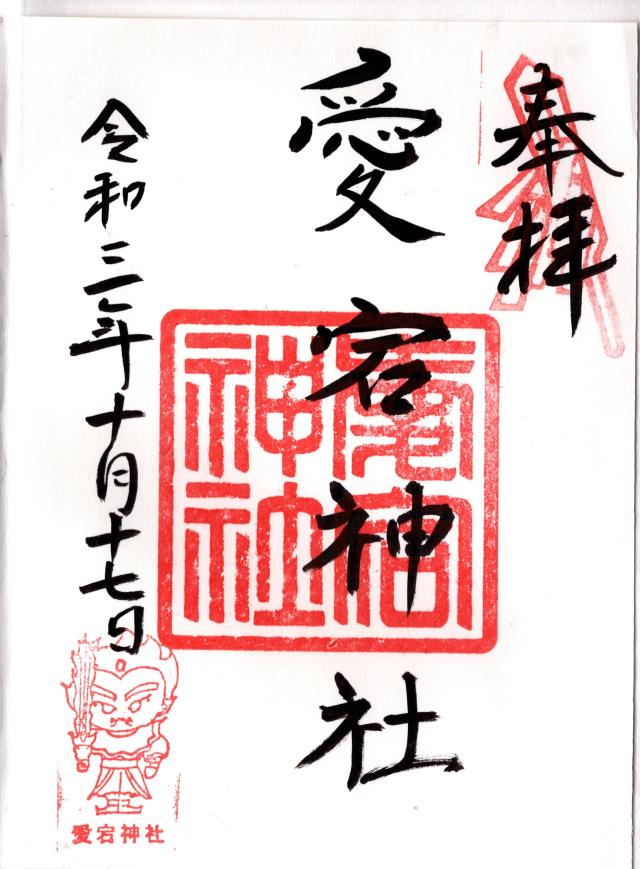 奉拝
愛宕神社
愛宕
神社
令和三年十月十七日
愛宕神社